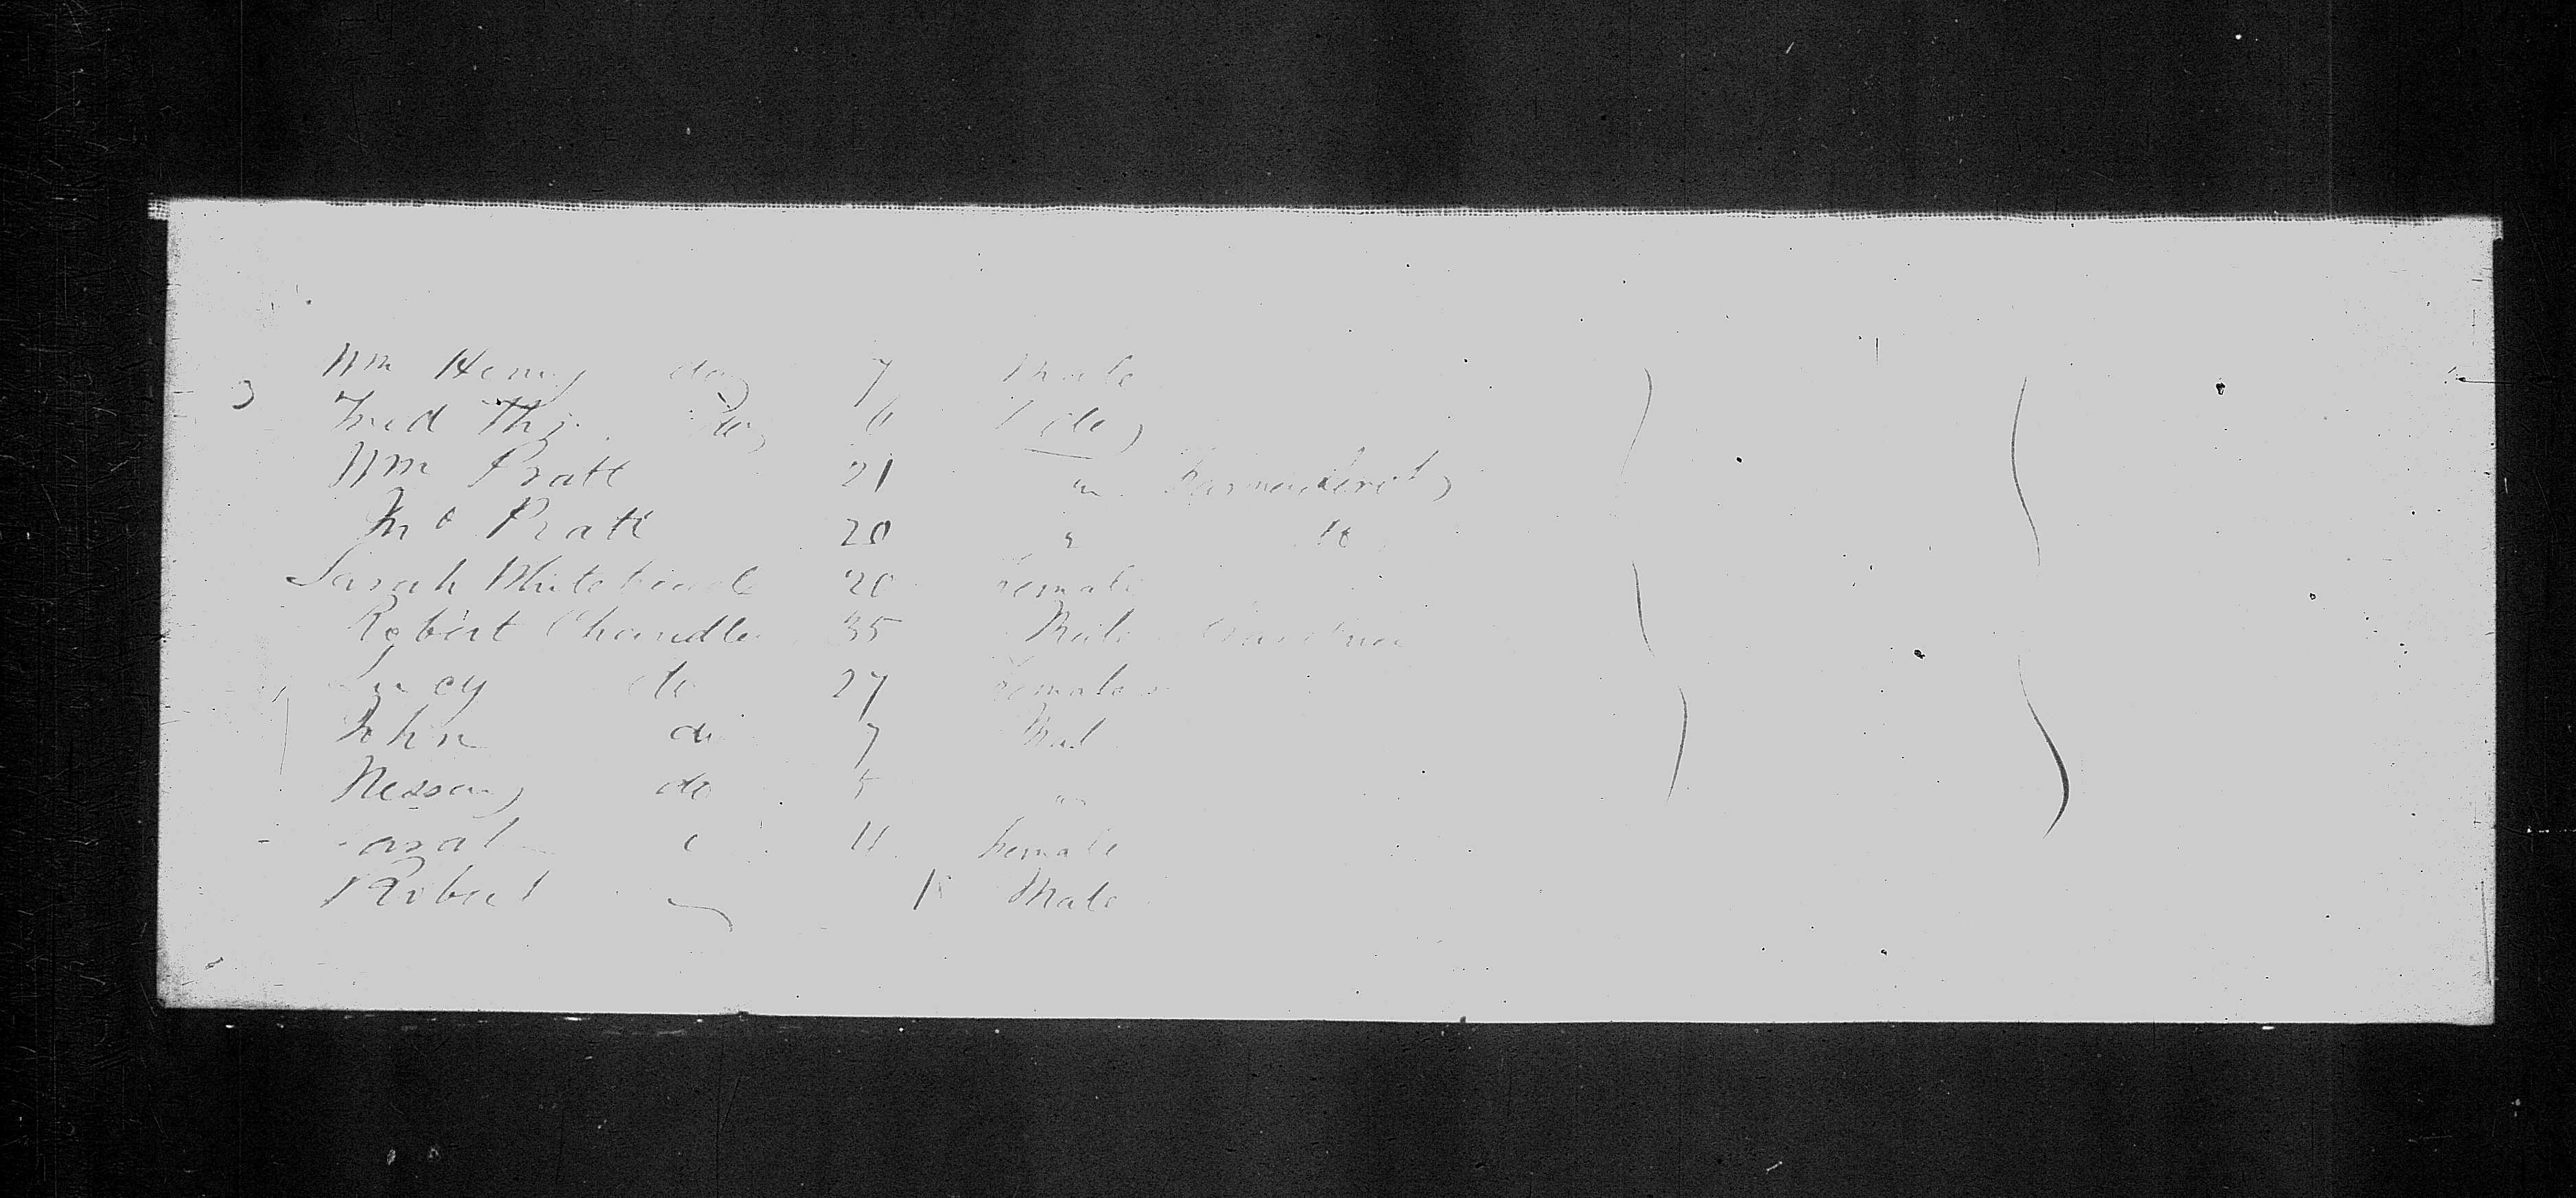 Wm Henry do 7 Male
Fred Thos. do 6 do
Wm Pratt 21 "
Jno Pratt 20 " do
Sarah 20 Female
Robert Chandler 35 Male
Lucy do 27 Female
John do 7 Male
do 5 "
Sarah 11 Female
Robert Male